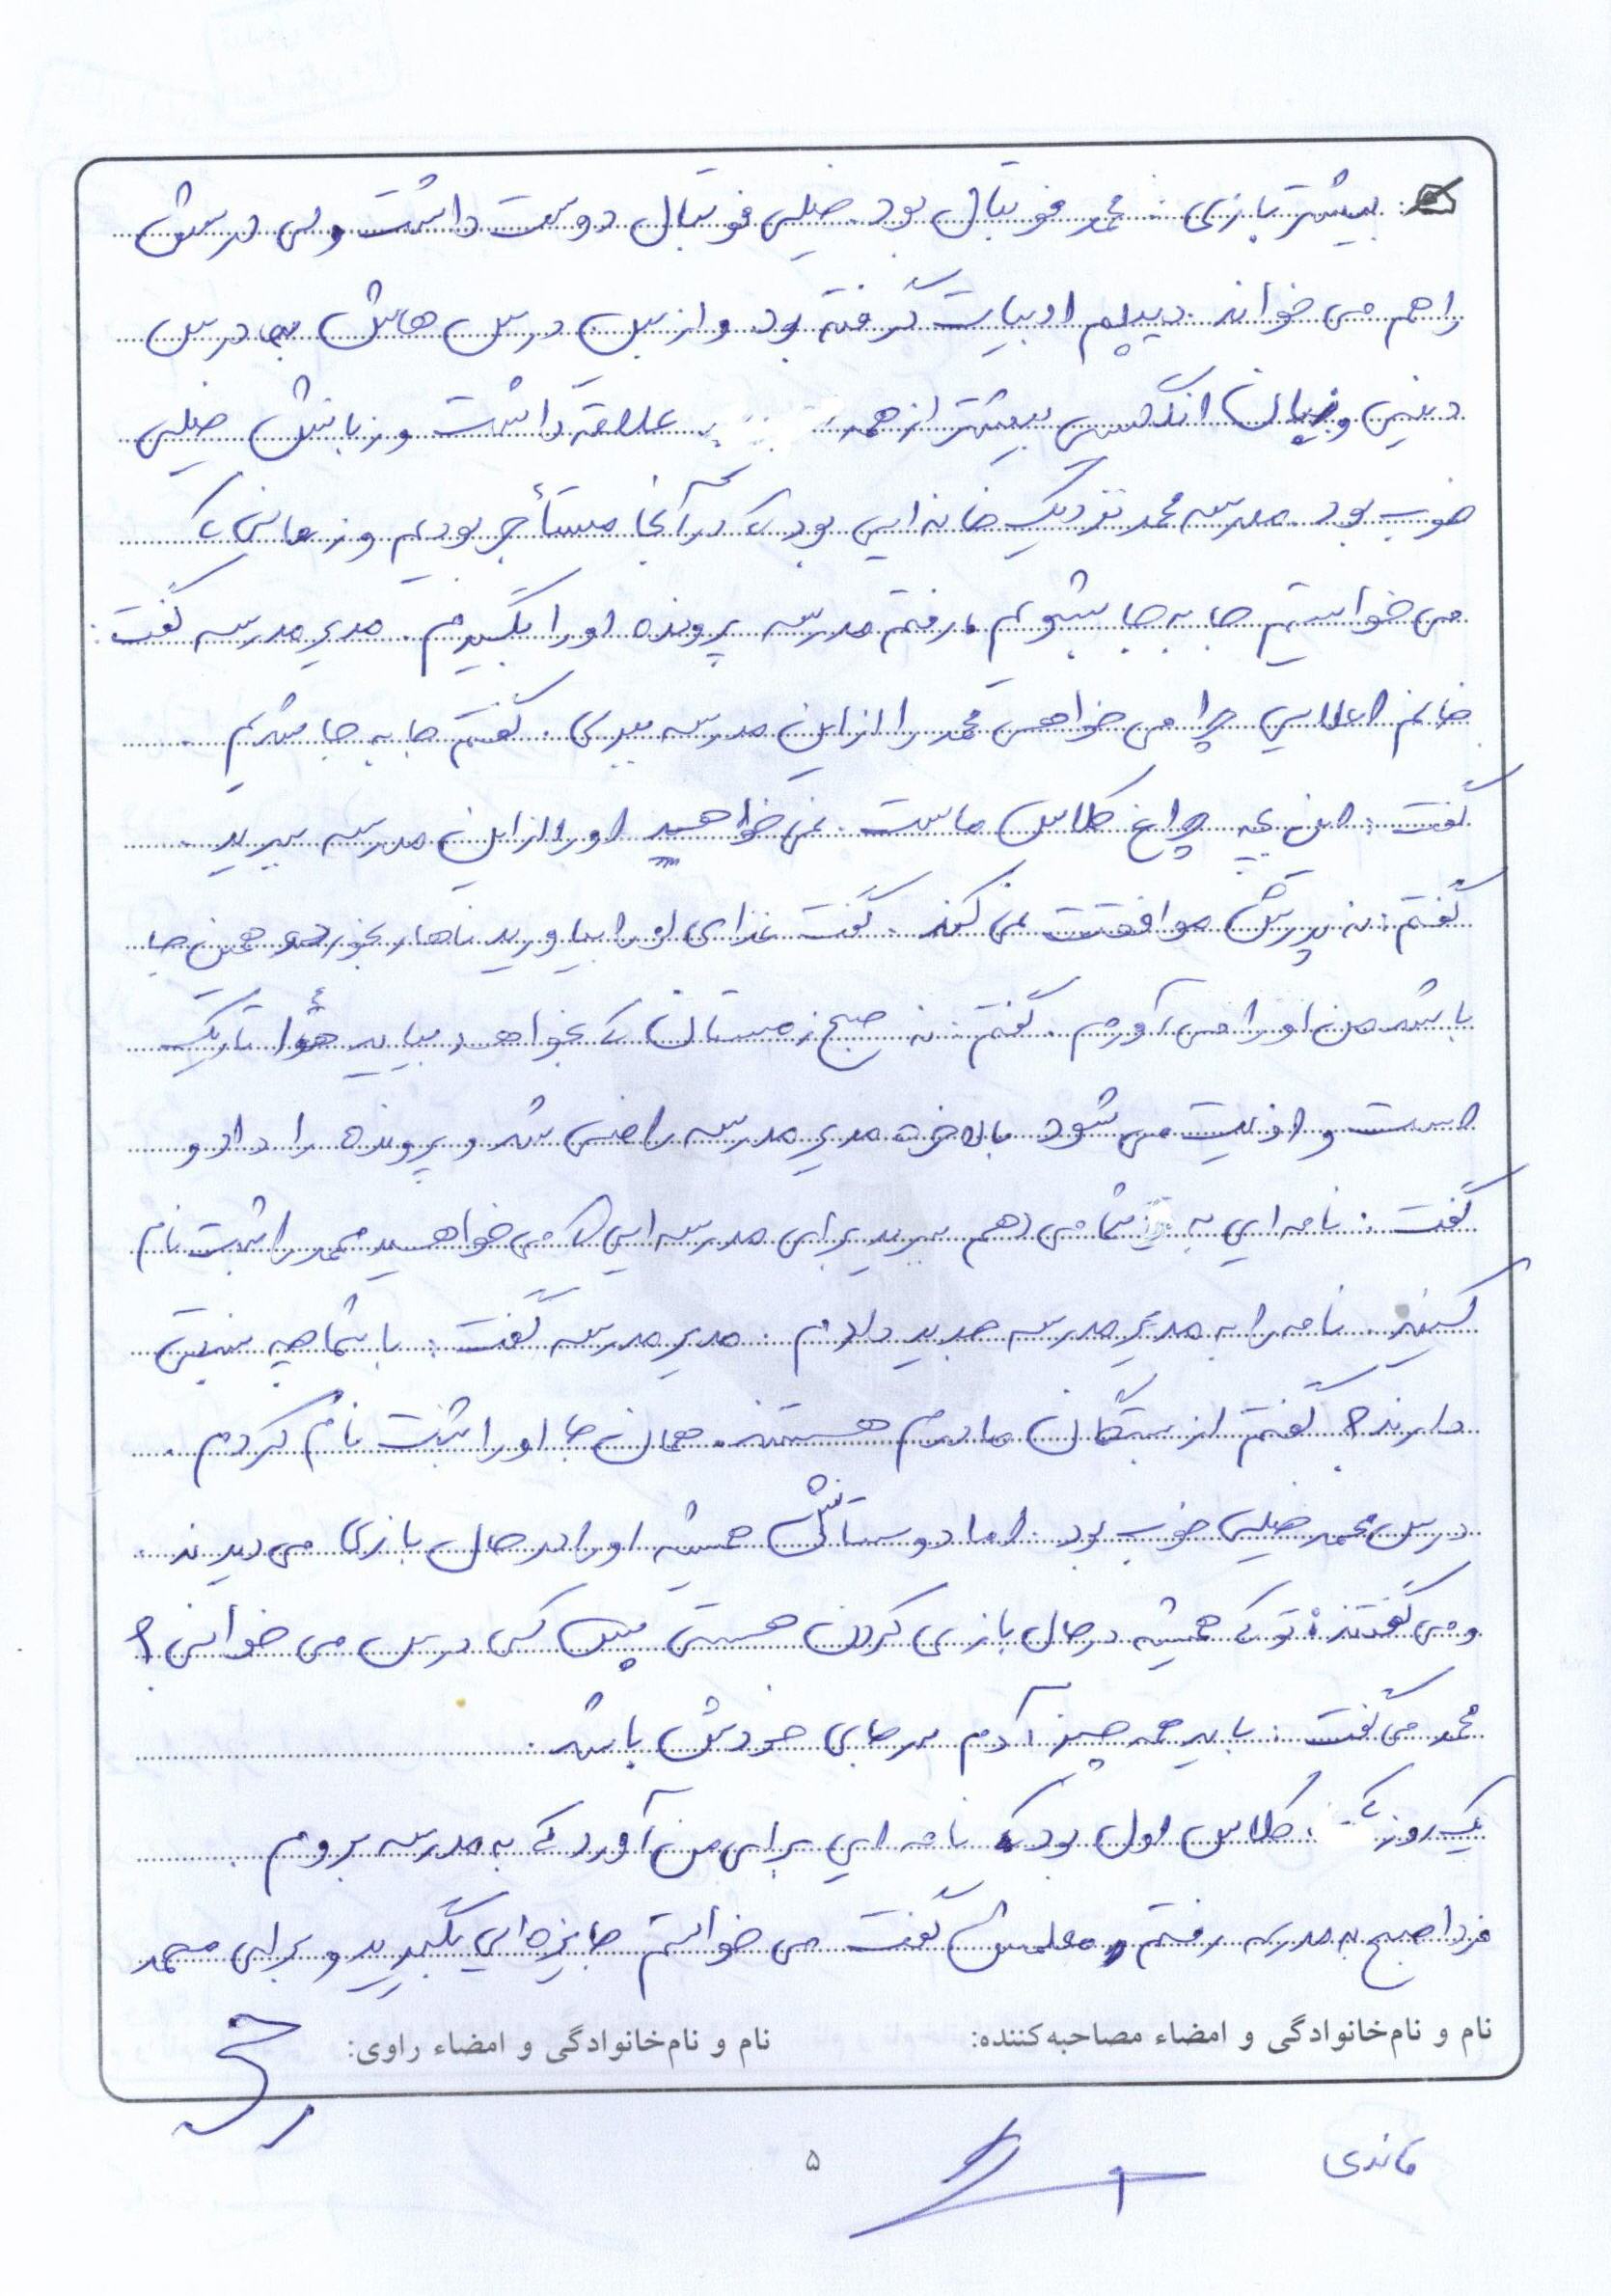 بیشتر بازی محمد فوتبال بود. خیلی فوتبال دوست داشت ولی درسش
را هم می خواند. دیپلم ادبیات گرفته بود و از بین درس هایش به درس
دینی و زبان انگلیسی بیشتر از همه علاقه داشت و زبانش خیلی
خوب بود. مدرسه محمد نزدیک خانه ایی بود که در آنجا مستأجر بودیم و زمانی که
می خواستیم جا به جا بشویم، رفتم مدرسه پرونده او را بگیرم. مدیر مدرسه گفت:
خانم چرا می خواهی محمد را از این مدرسه ببری. گفتم جا به جا شدیم.
گفت: این بچه چراغ کلاس ماست. نمی خواهید او را از این مدرسه ببرید.
گفتم: نه پدرش موافقت نمی کند. گفت غذای او را بیاورید ناهار بخورد همین جا
باشد من او را می آورم. گفتم: نه صبح زمستان که بخواهد بیاید هوا تاریک
است و اذیت می شود بالاخره مدیر مدرسه راضی شد و پرونده را داد و
گفت: نامه ایی به شما می دهم ببرید برای مدرسه ایی که می خواهید محمد را ثبت نام
کنید. نامه را به مدیر مدرسه جدید دادم. مدیر مدرسه گفت: با شما چه نسبتی
دارند؟ گفتم از بستگان مادرم هستند. همان جا او را ثبت نام کردم.
درس محمد خیلی خوب بود. اما دوستانش همیشه او را در حال بازی می دیدند.
و می گفتند: تو که همیشه در حال بازی کردن هستی پس کی درس می خوانی؟
محمد می گفت: باید همه چیز آدم سر جای خودش باشد.
یک روز که کلاس اول بود که نامه ایی برای من آورد که به مدرسه بروم.
فردا صبح به مدرسه رفتم و معلمش گفت می خواستم جایزه ایی بگیرید و برای محمد
نام و نام‌خانوادگی و امضاء مصاحبه‌کننده: نام و نام‌خانوادگی و امضاء راوی:
۵